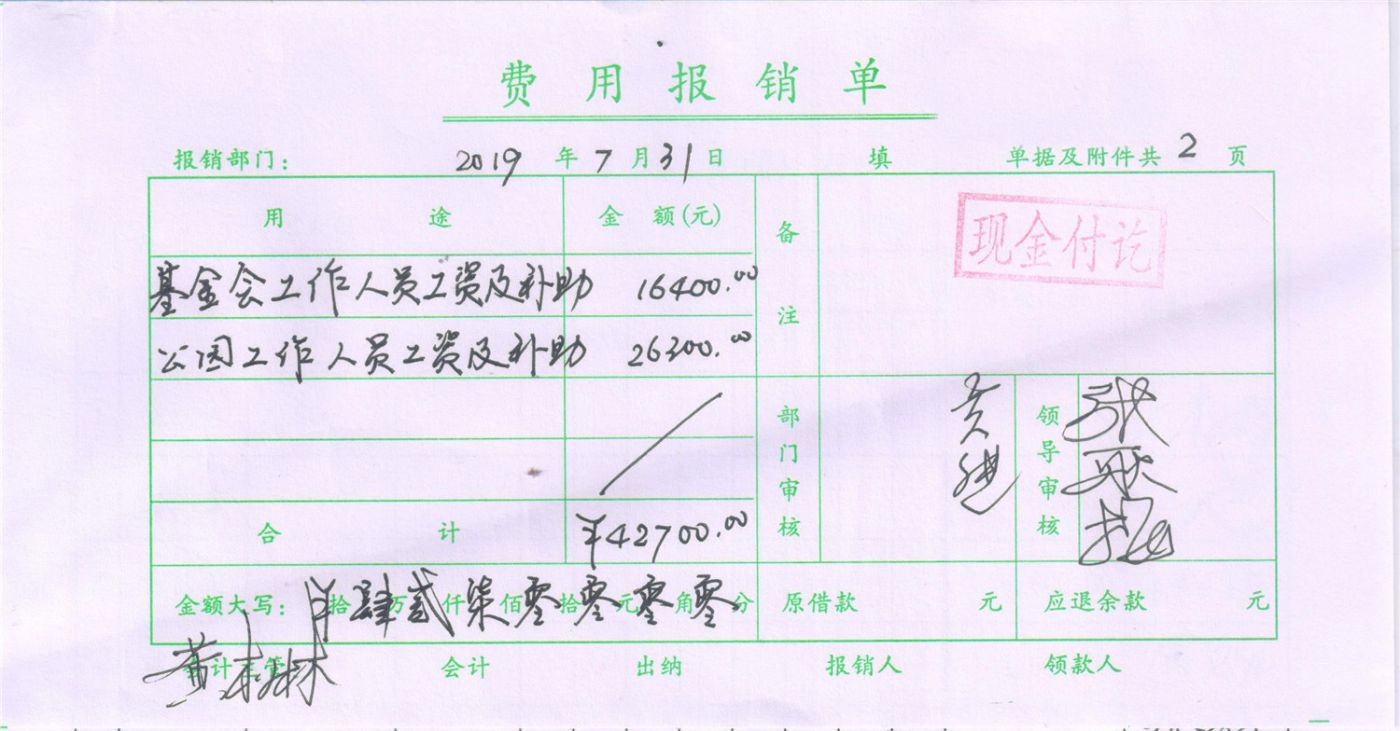 费用报销单
报销部门： 2019 年 7 月 31 日 填 单据及附件共 2 页
用途 金额(元) 备注
现金付讫
基金会工作人员工资及补助 16400.00
公园工作人员工资及补助 26300.00
部门审核 领导审核
合计 ¥42700.00
金额大写： 拾肆万贰仟柒佰零拾零元零角零分 原借款 元 应退余款 元
会计主管 会计 出纳 报销人 领款人